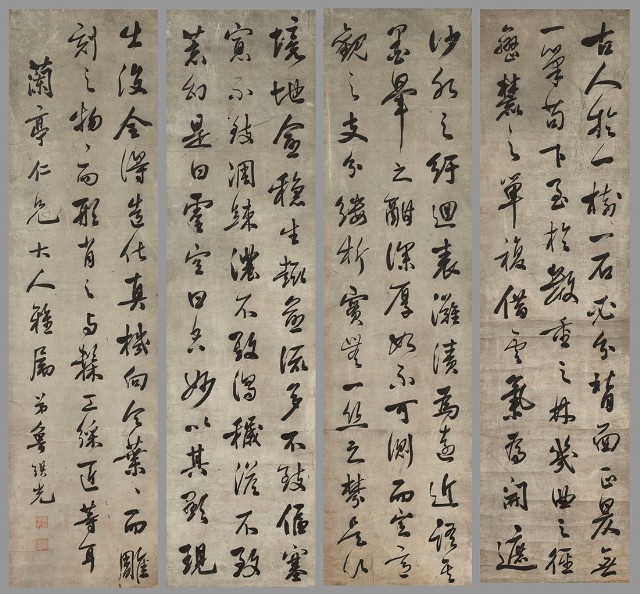 古人於一樹一石必分背面正昃無
一筆苟下至於數重之林幾曲之徑
巒麓之單複借雲氣為開遮
沙水之紆迴表灘磧為遠近語其
墨暈之酣深厚如不可測而定意
觀之支分縷析實無一絲之棼是以
境地愈穩生趣愈流多不致偪塞
寡不致凋疎濃不致濁穢淡不致
荒幻是曰靈空曰空妙以其顯現
出沒全得造化真機向令葉〻而雕
刻之物〻而形肖之與髹工綵匠等耳
蘭亭仁兄大人雅屬弟魯琪光